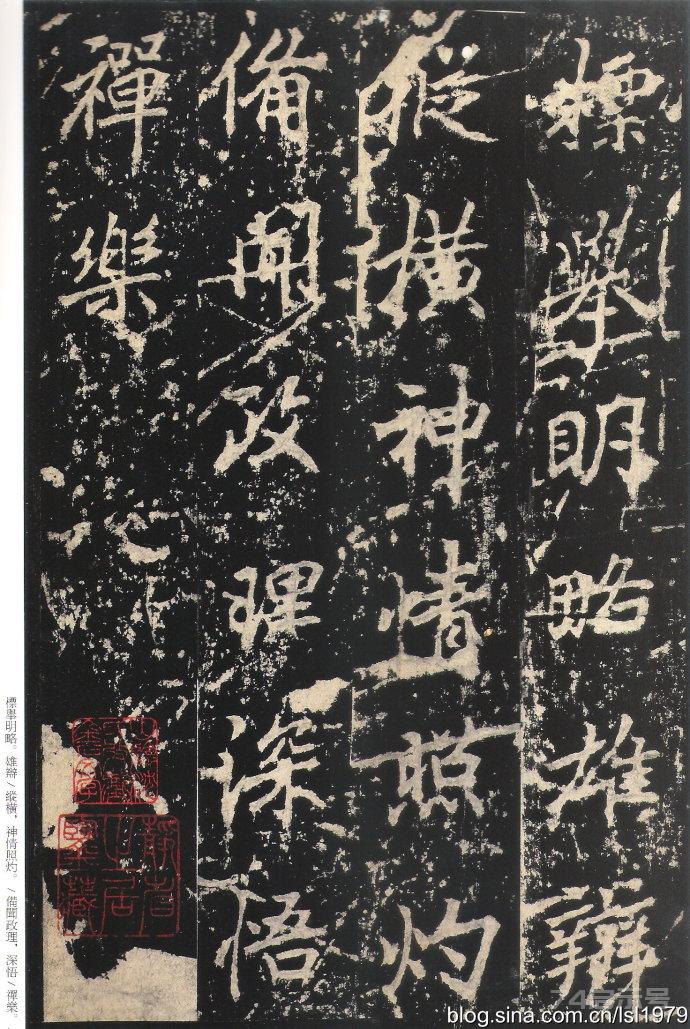 標舉明略雄辯
縱橫神情照灼
備聞政理深悟
禪樂
靜者
之居
鑒藏
標舉明略。雄辯/縱橫,神情照灼。/備聞政理,深悟/禪樂。
74宣示号
blog.sina.com.cn/lsl1979